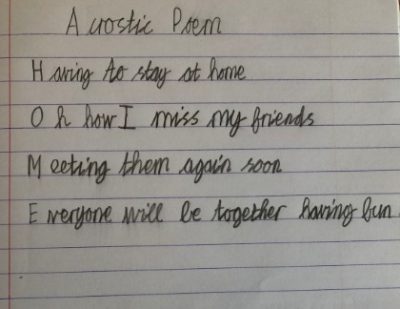 Acrostic Poem
Having to stay at home
Oh how I miss my friends
Meeting them again soon
Everyone will be together having fun